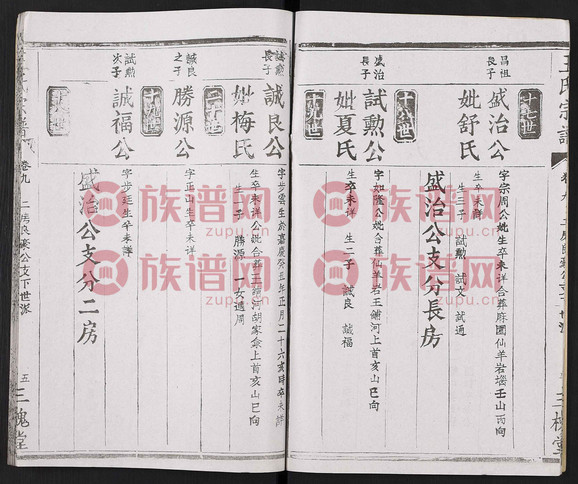 王氏宗譜
十七世
昌祖
長子
盛治公
妣舒氏
字宗周公妣生卒未詳合葬麻園仙羊岩壪壬山丙向
生卒未詳
生三子 試勳 試文 試通
盛治公支分長房
十八世
盛治
長子
試勳公
妣夏氏
字如隆公妣合葬仙羊岩王鋪河上首亥山巳向
生卒未詳 生二子 誠良 誠福
十九世
長子
誠良公
妣梅氏
字步雲生於嘉慶癸丑年正月二十六亥時卒未詳
生卒未詳公妣合葬王鋪河胡家侖上首亥山巳向
生一子 勝源 一女適周
二十世
誠良
之子
勝源公
字正山生卒未詳
十九世
試勳
次子
誠福公
字步延生卒未詳
盛治公支分二房
卷九 二房良案公支下世派
五 三槐堂
族谱网
zupu.cn
族谱网
zupu.cn
族谱网
zupu.cn
族谱网
zupu.cn